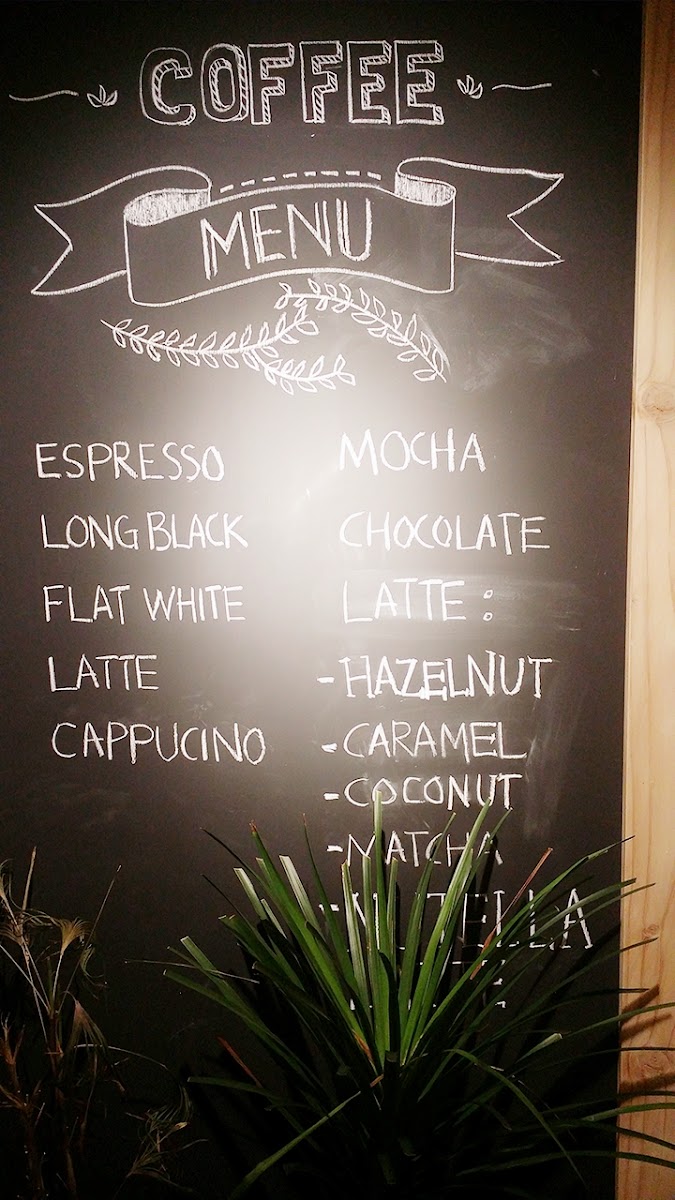 COFFEE
MENU
ESPRESSO
LONG BLACK
FLAT WHITE
LATTE
CAPPUCINO
MOCHA
CHOCOLATE
LATTE :
-HAZELNUT
-CARAMEL
-COCONUT
-MATCHA
-NUTELLA